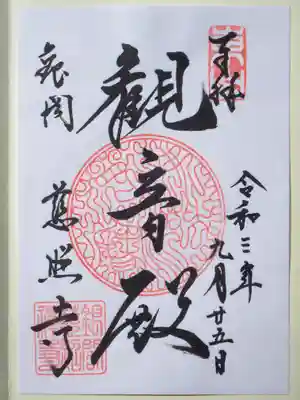 奉拝
令和三年
九月廿五日
観音殿
銀閣
慈照寺